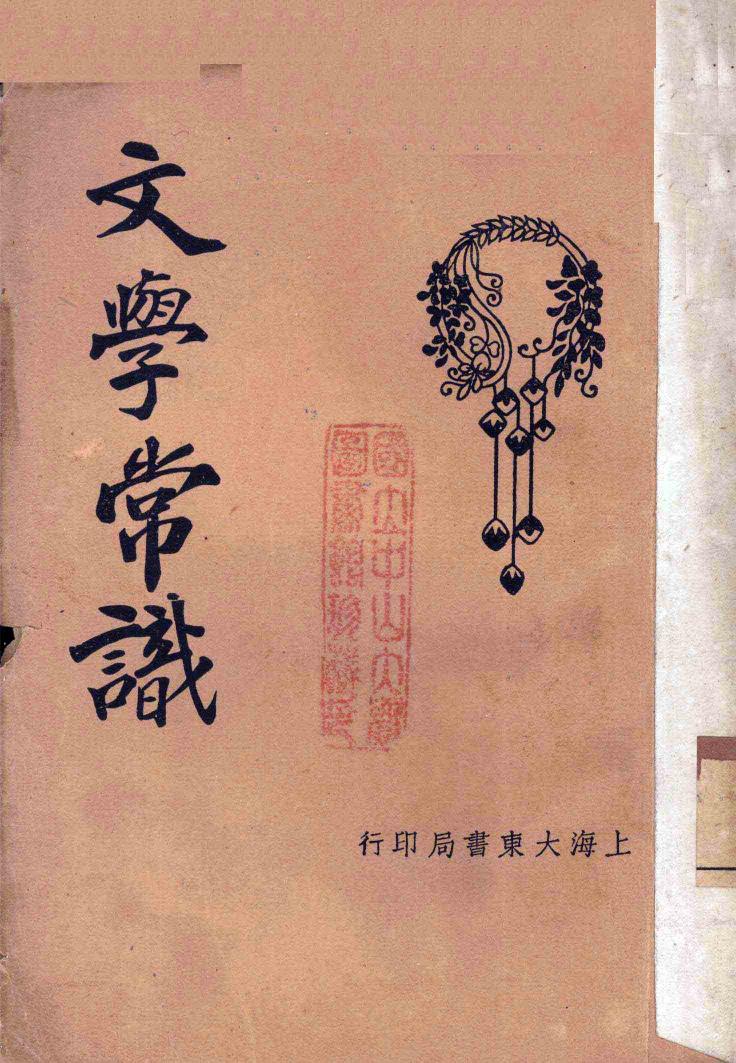 文學常識
國立中山大學
圖書館珍藏印
上海大東書局印行